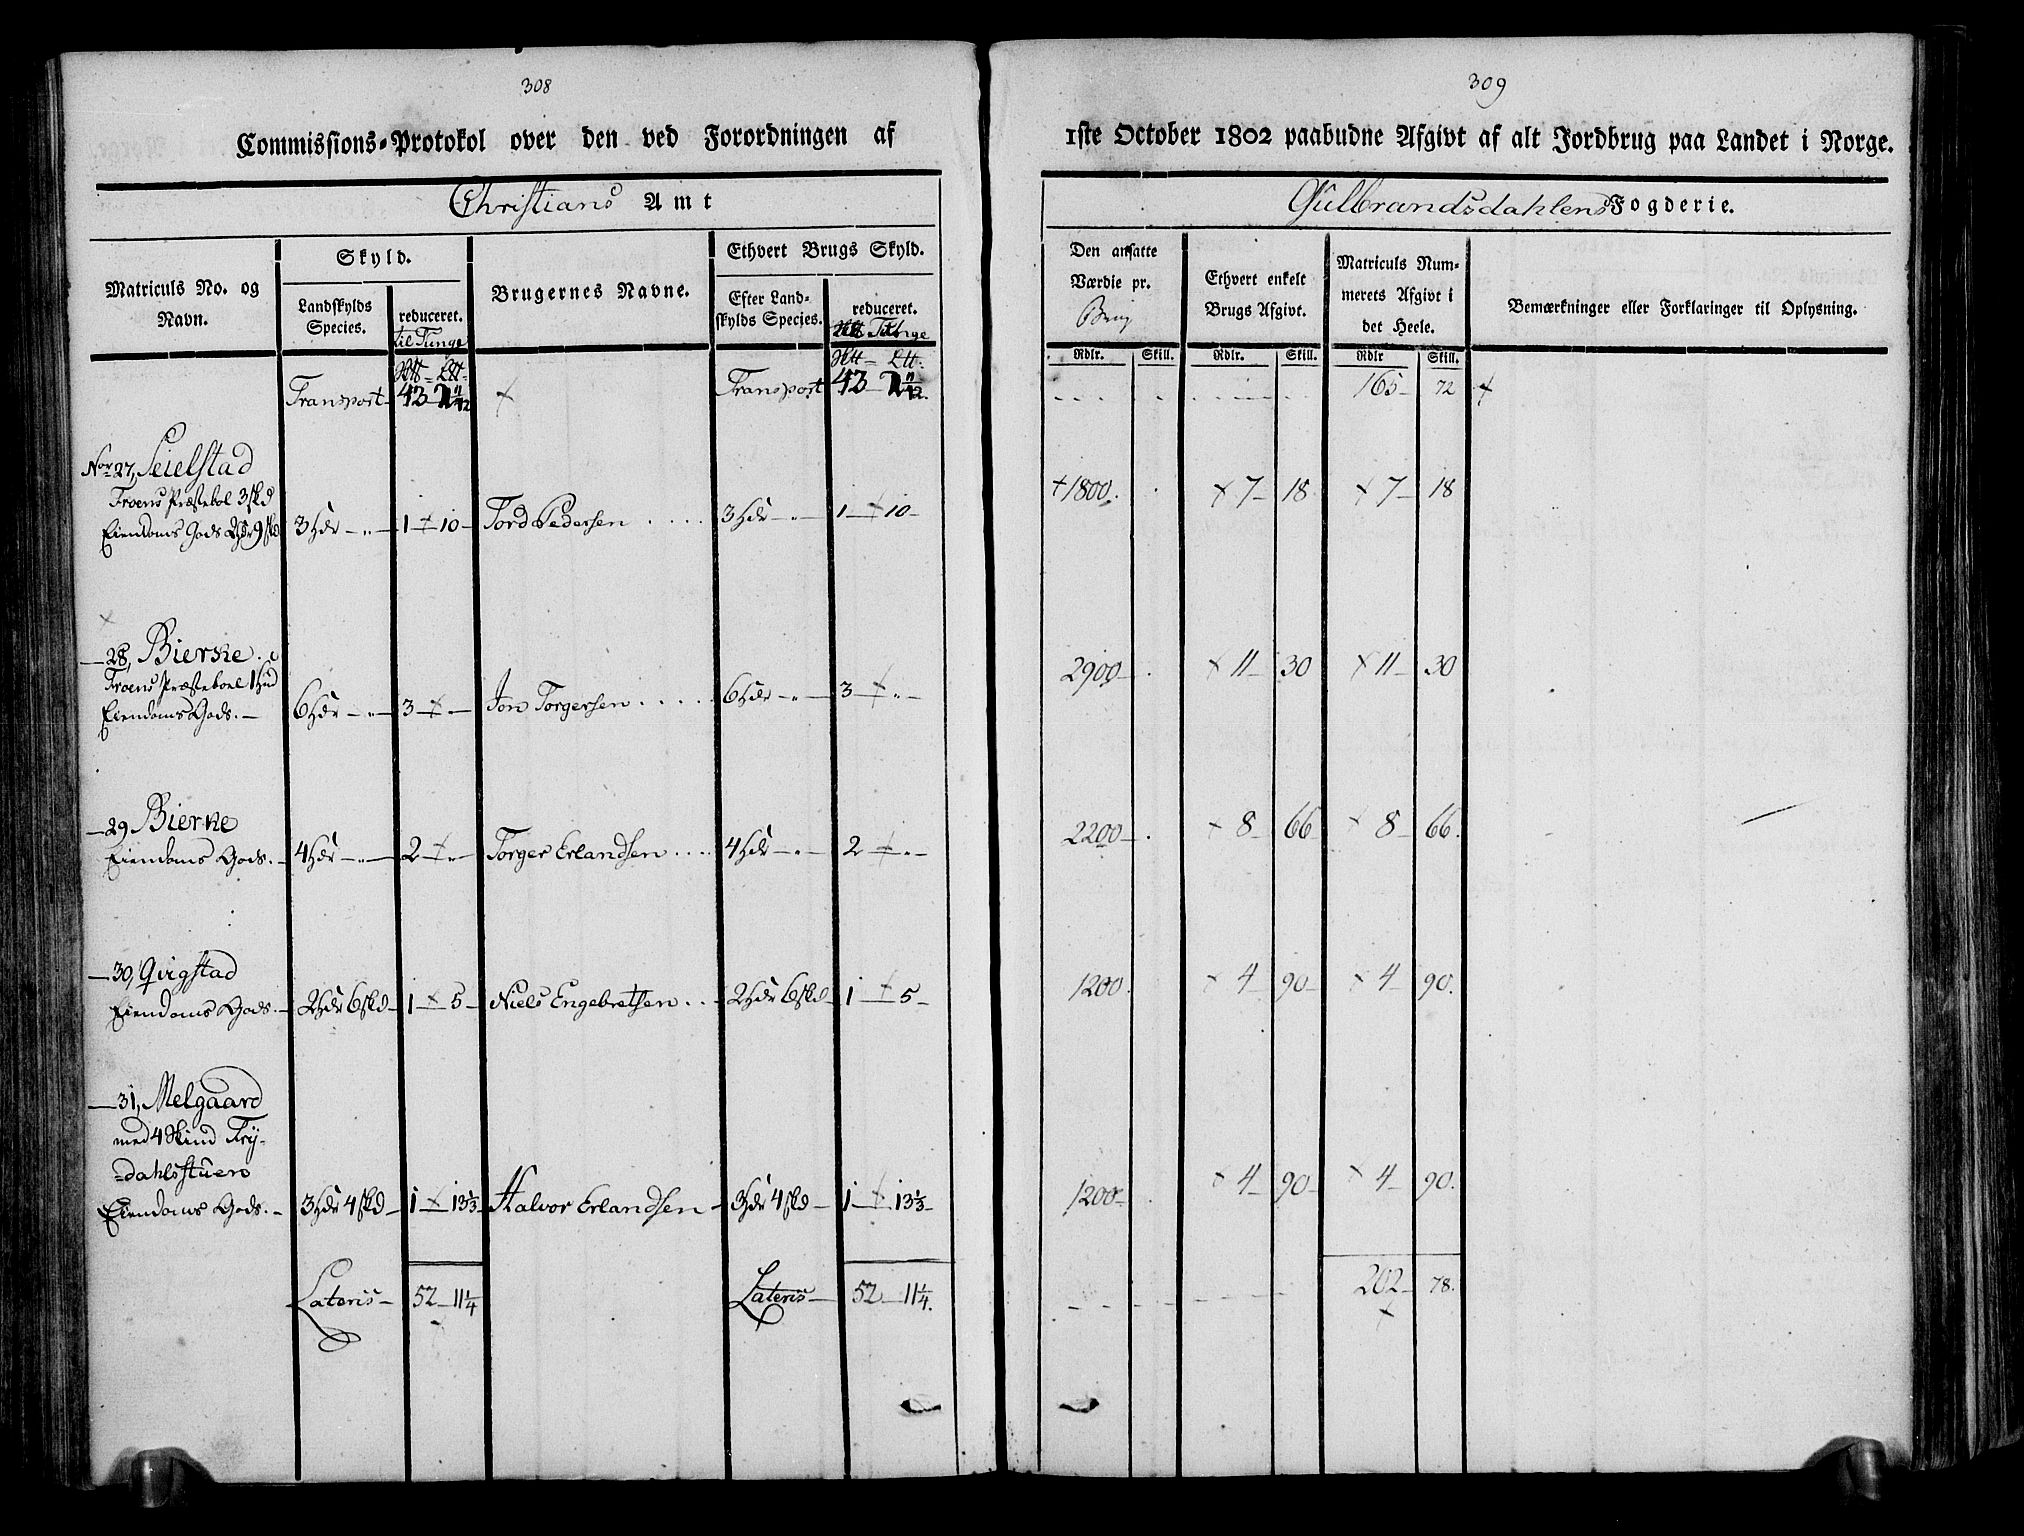 308
Commissions-Protokol over den ved Forordningen af
Christians Amt
Matriculs No. og Navn.
Skyld.
Landskylds Species.
reduceret.
til Tunge
Brugernes Navne.
Ethvert Brugs Skyld.
Efter Landskylds Species.
reduceret.
Transport 43 Transport 43
Nor 27, Seielstad
Froens Præstebol 3 skd
Eiendoms Gods 2 Hdr 9 skd 3 Hdr 1 10 Tord Pedersen 3 Hdr 1 10
28, Bierke
Froens Præsteboel 1 Hud
Eiendoms Gods. 6 Hdr 3 Jon Torgersen 6 Hdr 3
29 Bierke
Eiendoms Gods. 4 Hdr 2 Torger Erlandsen 4 Hdr 2
30, Qvigstad
Eiendoms Gods. 2 Hdr 6 skd 1 5 Niels Engebretsen 2 Hdr 6 skd 1 5
31, Melgaard
med 4 Skind Fry-
dahlsstuen
Eiendoms Gods. 3 Hdr 4 skd 1 13 1/3 Halvor Erlandsen 3 Hdr 4 skd 1 13 1/3
Lateris 52 11 1/4 Lateris 52 11 1/4.
309
1ste October 1802 paabudne Afgivt af alt Jordbrug paa Landet i Norge.
Gulbrandsdahlens Fogderie.
Den ansatte Værdie pr.
Brug
Ethvert enkelt Brugs Afgivt.
Matriculs Nummerets Afgivt i det Heele.
Bemærkninger eller Forklaringer til Oplysning.
Rdlr. Skill. Rdlr. Skill. Rdlr Skill.
165 72
1800. 7 18 7 18
2900 11 30 11 30
2200 8 66 8 66.
1200 4 90 4 90.
1200 4 90 4 90.
202 78.